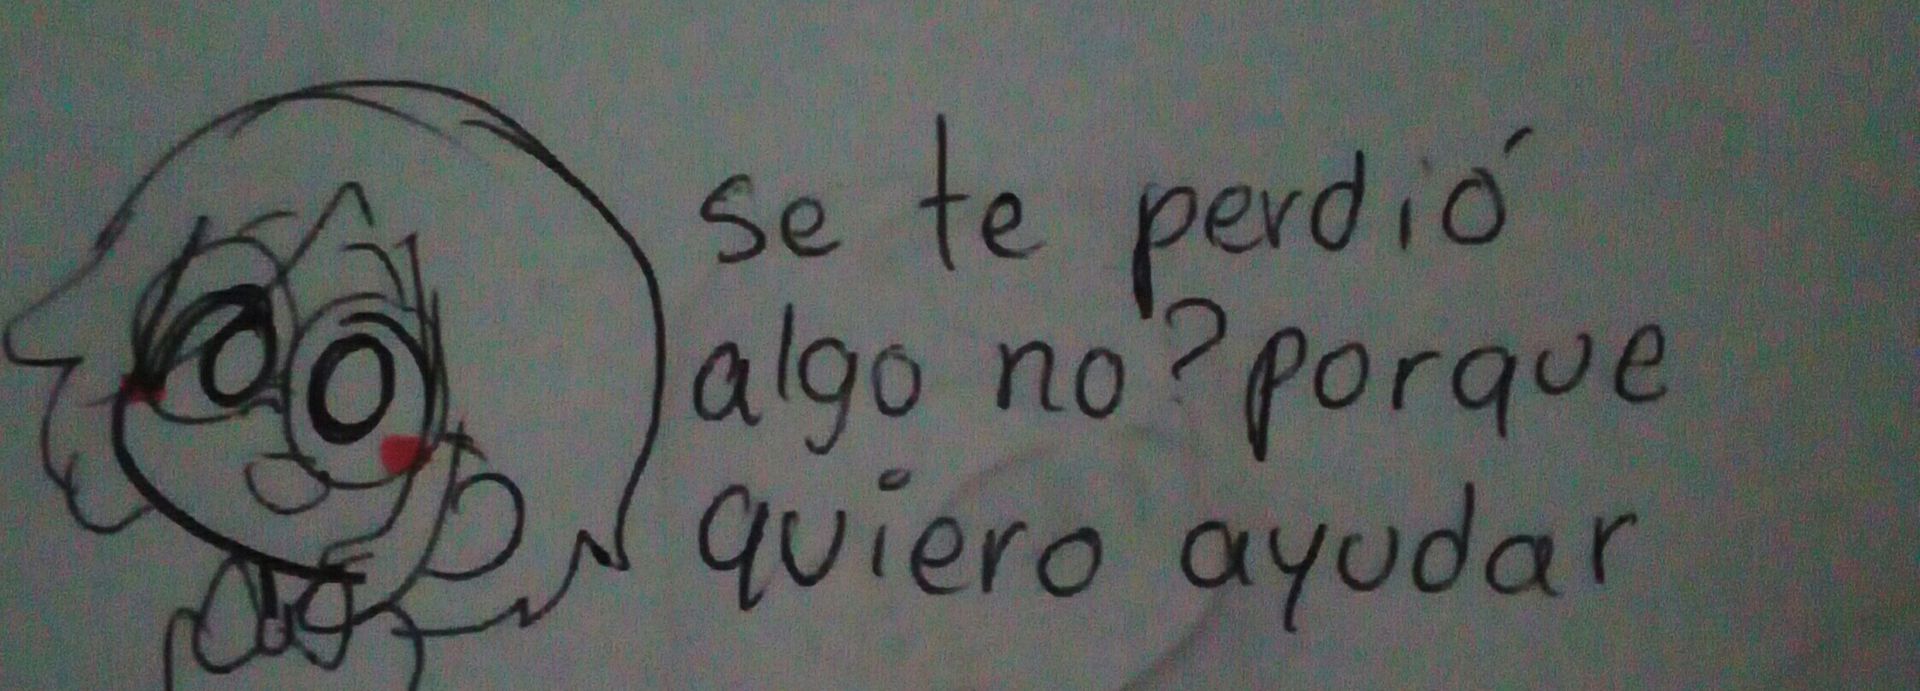 se te perdió
algo no? porque
quiero ayudar